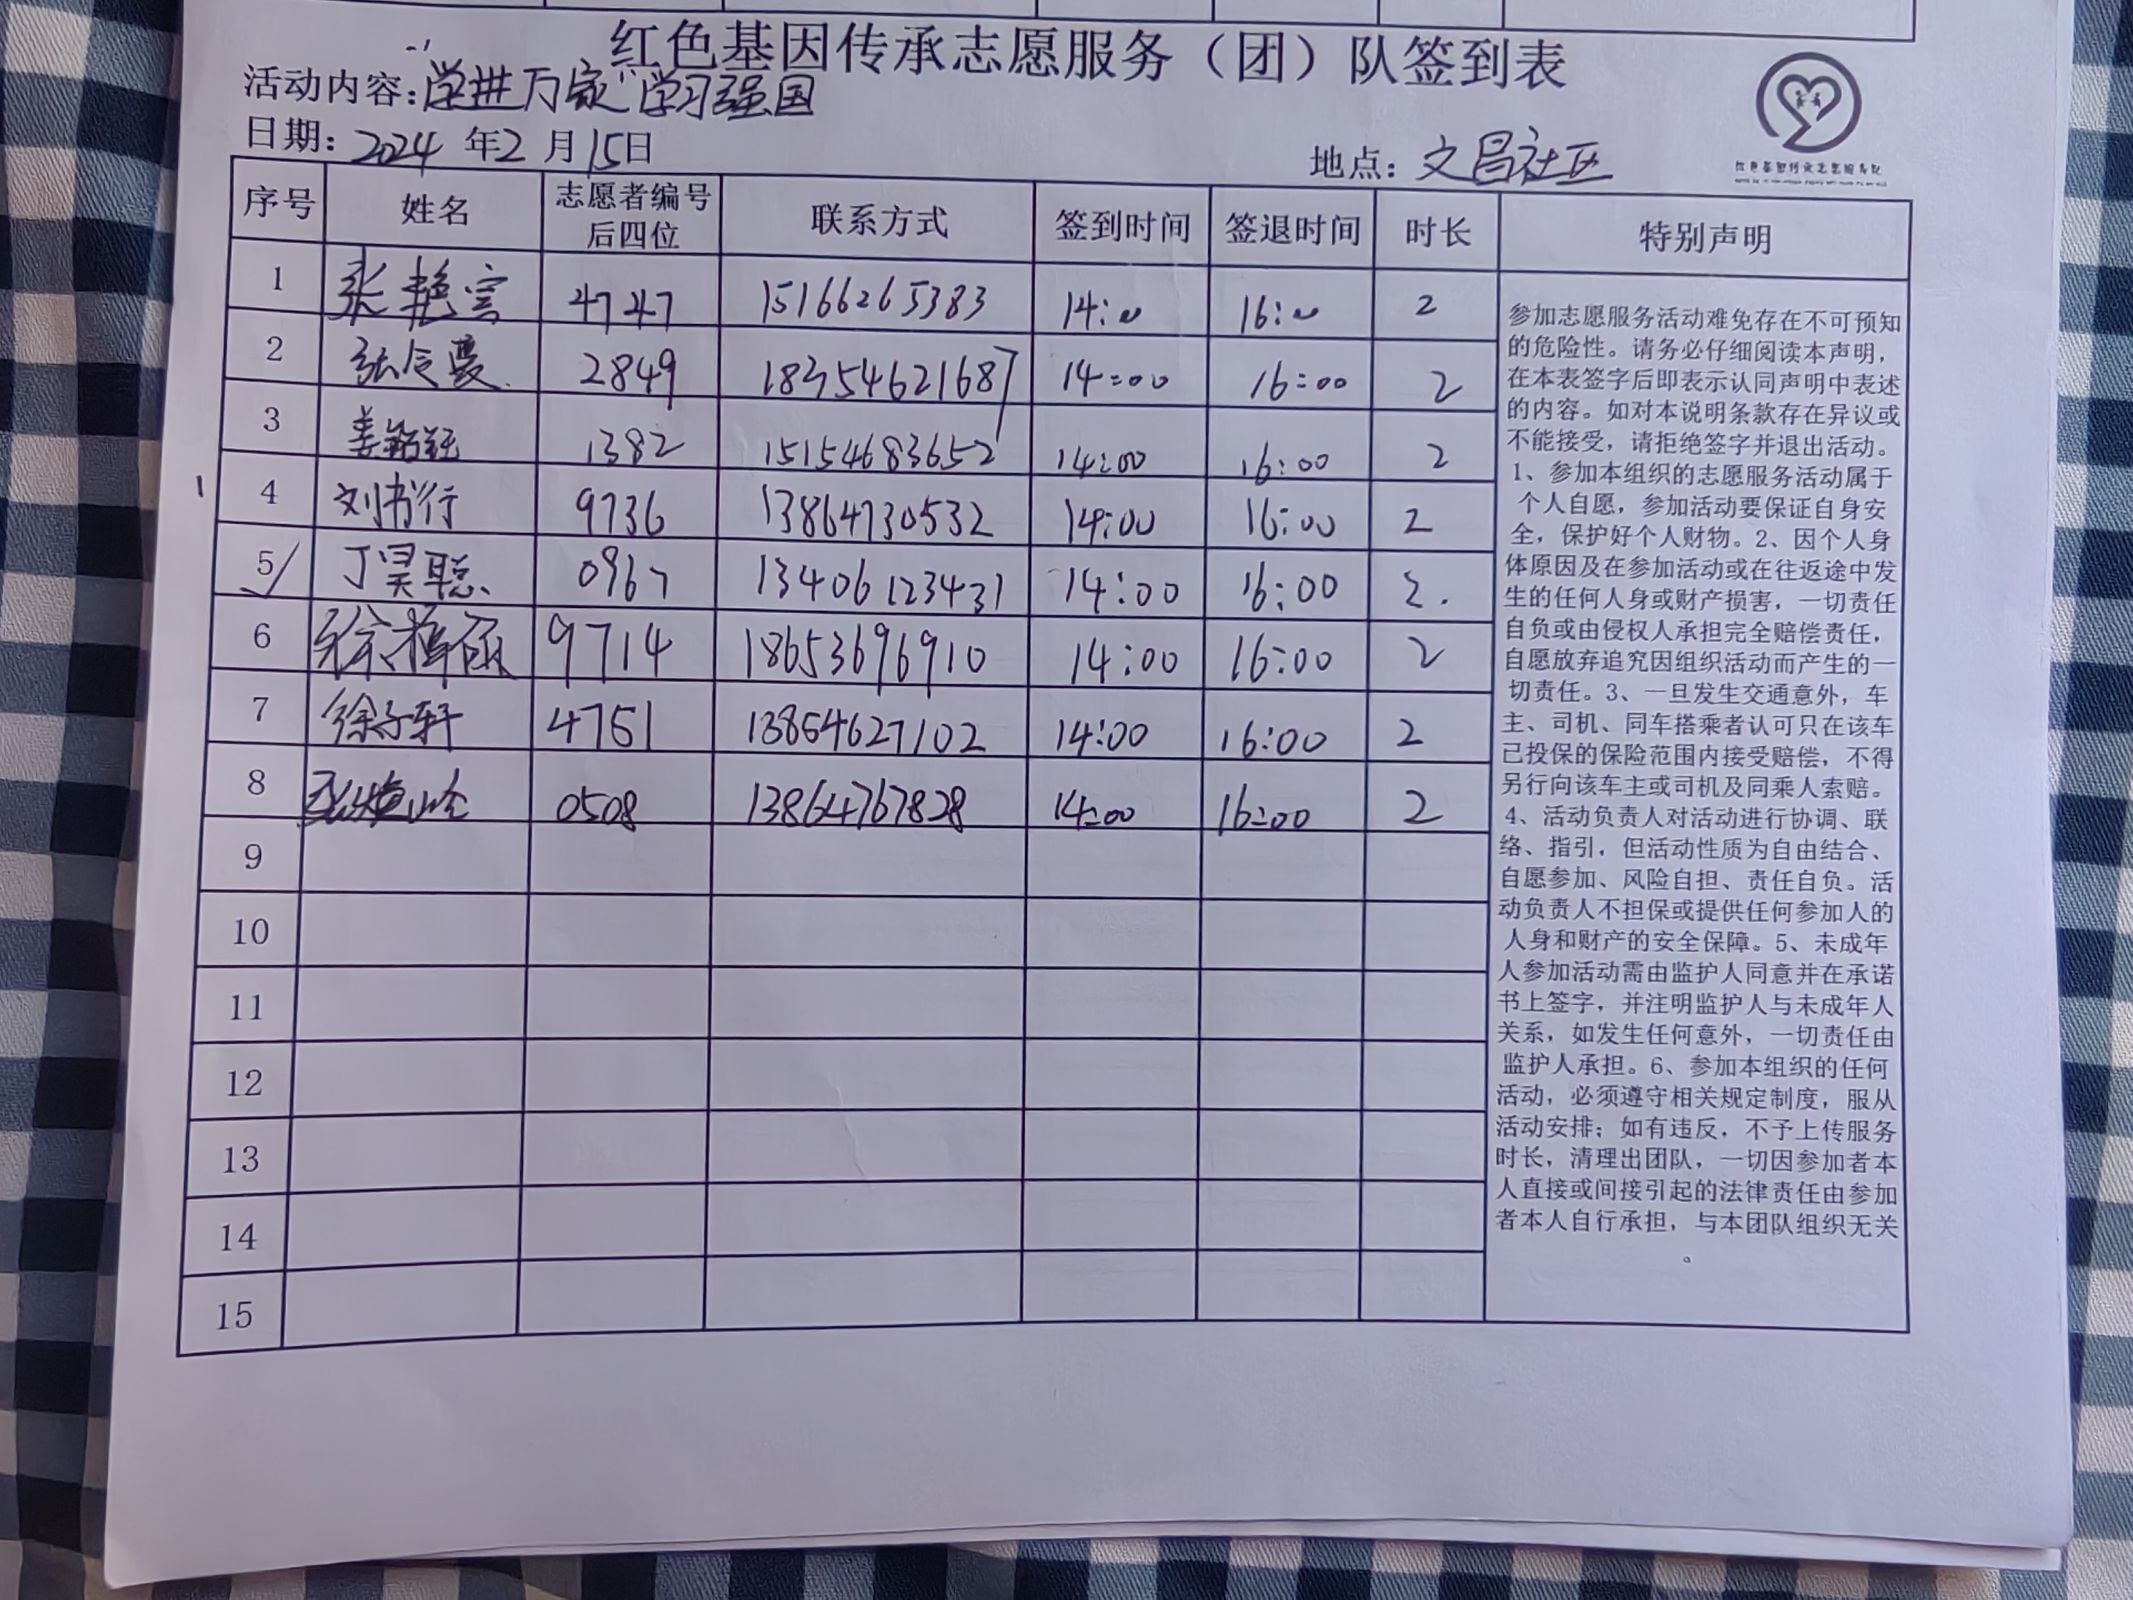 红色基因传承志愿服务（团）队签到表
活动内容：“学进万家”学习强国
日期：2024 年2 月15日
地点：文昌社区
序号 姓名 志愿者编号后四位 联系方式 签到时间 签退时间 时长 特别声明
1 张艳宫 4747 15166265383 14:00 16:00 2
2 张令霞 2849 18354621687 14:00 16:00 2
3 姜铭钰 1382 15154683652 14:00 16:00 2
4 刘书行 9736 13864730532 14:00 16:00 2
5 丁昊聪 0967 13406123431 14:00 16:00 2.
6 徐梓 9714 18653696910 14:00 16:00 2
7 徐子轩 4751 13854627102 14:00 16:00 2
8 0508 13864767828 14:00 16:00 2
9
10
11
12
13
14
15
参加志愿服务活动难免存在不可预知
的危险性。请务必仔细阅读本声明，
在本表签字后即表示认同声明中表述
的内容。如对本说明条款存在异议或
不能接受，请拒绝签字并退出活动。
1、参加本组织的志愿服务活动属于
个人自愿，参加活动要保证自身安
全，保护好个人财物。2、因个人身
体原因及在参加活动或在往返途中发
生的任何人身或财产损害，一切责任
自负或由侵权人承担完全赔偿责任，
自愿放弃追究因组织活动而产生的一
切责任。3、一旦发生交通意外，车
主、司机、同车搭乘者认可只在该车
已投保的保险范围内接受赔偿，不得
另行向该车主或司机及同乘人索赔。
4、活动负责人对活动进行协调、联
络、指引，但活动性质为自由结合、
自愿参加、风险自担、责任自负。活
动负责人不担保或提供任何参加人的
人身和财产的安全保障。5、未成年
人参加活动需由监护人同意并在承诺
书上签字，并注明监护人与未成年人
关系，如发生任何意外，一切责任由
监护人承担。6、参加本组织的任何
活动，必须遵守相关规定制度，服从
活动安排；如有违反，不予上传服务
时长，清理出团队，一切因参加者本
人直接或间接引起的法律责任由参加
者本人自行承担，与本团队组织无关
。